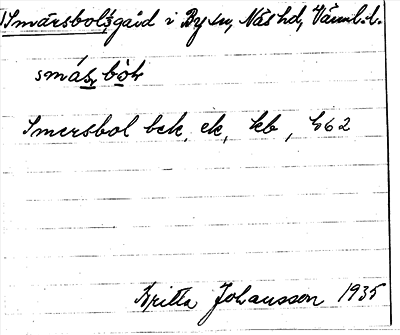 Smårsbol, gård i By sn, Näs hd, Värml. l.
smás₂ bo̲l
Smersbol bek, ek, kb, h62
Britta Johansson 1935